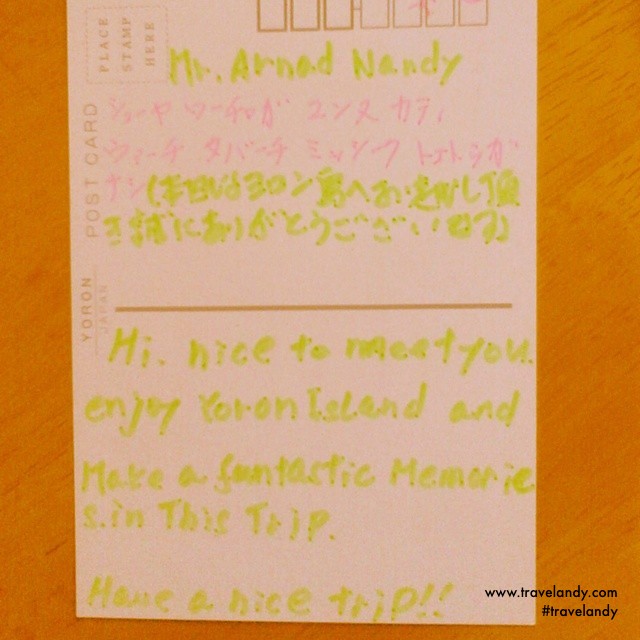 PLACE
STAMP
HERE
POST CARD
YORON
JAPAN
Mr. Arnad Nandy
ショーヤ ワーチャガ ユンヌ カティ
ウィーチ タバーチ ミッシーク トゥトゥガ
ナシ(本日はヨロン島へお越し頂
き誠にありがとうございます)
Hi. nice to meet you.
enjoy Yoron Island and
Make a fantastic Memorie
s.in This Trip.
Have a nice trip!!
www.travelandy.com
#travelandy